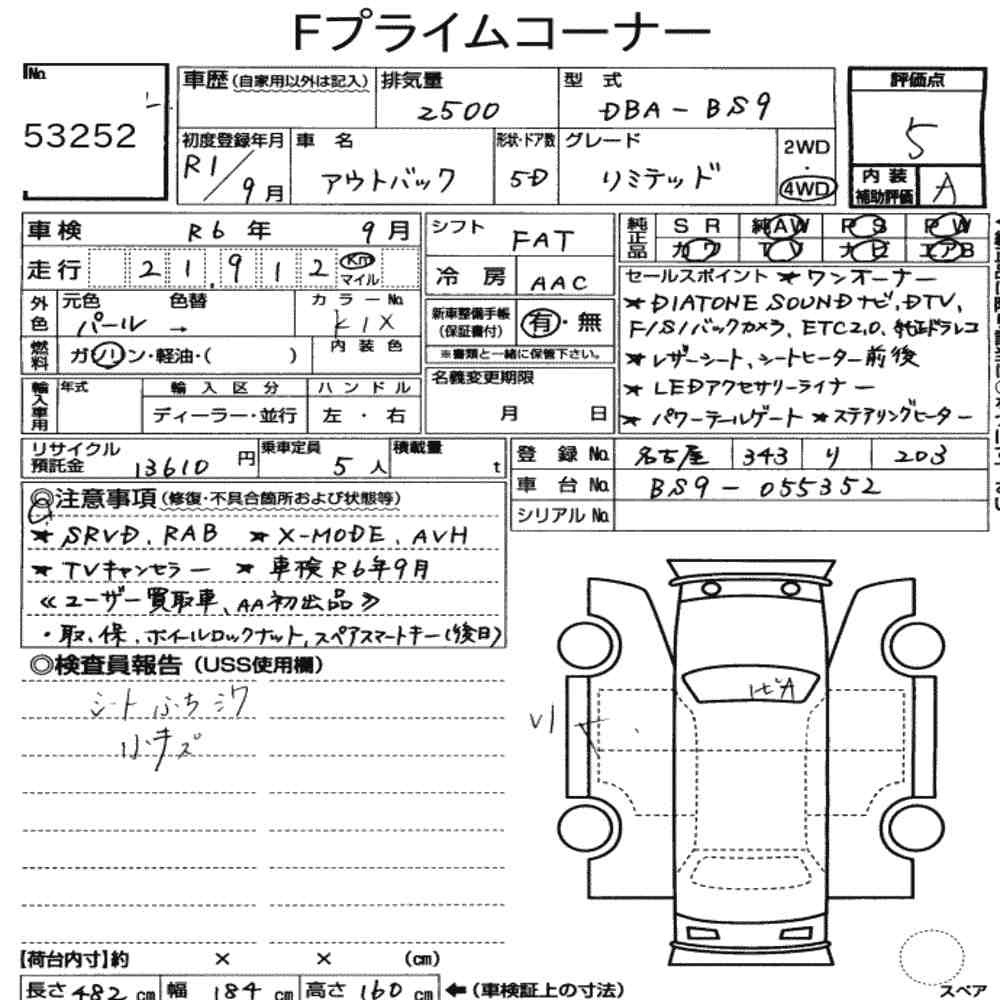 Fプライムコーナー
No.
53252
車歴(自家用以外は記入)
排気量
2500
型式
DBA-BS9
評価点
5
初度登録年月
R1/9月
車名
アウトバック
形状・ドア数
5D
グレード
リミテッド
2WD
・
4WD
内装
補助評価
A
車検 R6年 9月
走行 21,912 Km
マイル
シフト
FAT
冷房
AAC
純正品
SR 純AW PS PW
カワ TV ナビ エアB
外色
元色 色替
パール →
カラーNo.
K1X
燃料
ガソリン・軽油・( )
内装色
新車整備手帳
(保証書付)
有・無
※書類と一緒に保管下さい。
セールスポイント ★ワンオーナー
★DIATONE SOUNDナビ, DTV,
F/S/バックカメラ, ETC2.0, 純正ドラレコ
★レザーシート, シートヒーター前後
★LEDアクセサリーライナー
★パワーテールゲート ★ステアリングヒーター
輸入車用
年式
輸入区分
ディーラー・並行
ハンドル
左・右
名義変更期限
月 日
リサイクル
預託金
13610円
乗車定員
5人
積載量
t
登録No. 名古屋 343 り 203
車台No. BS9-055352
シリアルNo.
◎注意事項(修復・不具合箇所および状態等)
★SRVD, RAB ★X-MODE, AVH
★TVキャンセラー ★車検R6年9月
≪ユーザー買取車, AA初出品≫
・取, 保, ホイールロックナット, スペアスマートキー(後日)
◎検査員報告(USS使用欄)
シートふちシワ
小キズ
トビA
【荷台内寸】約 × × (cm)
長さ 482 cm 幅 184 cm 高さ 160 cm ←(車検証上の寸法)
スペア